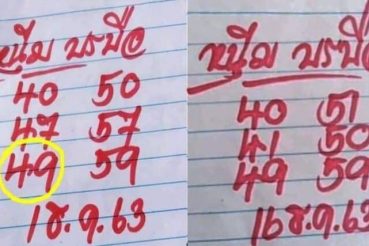 หนุ่ม บรบือ
40 50
47 57
49 59
1 ธ.ค. 63
หนุ่ม บรบือ
40 51
41 50
49 59
16 ธ.ค. 63